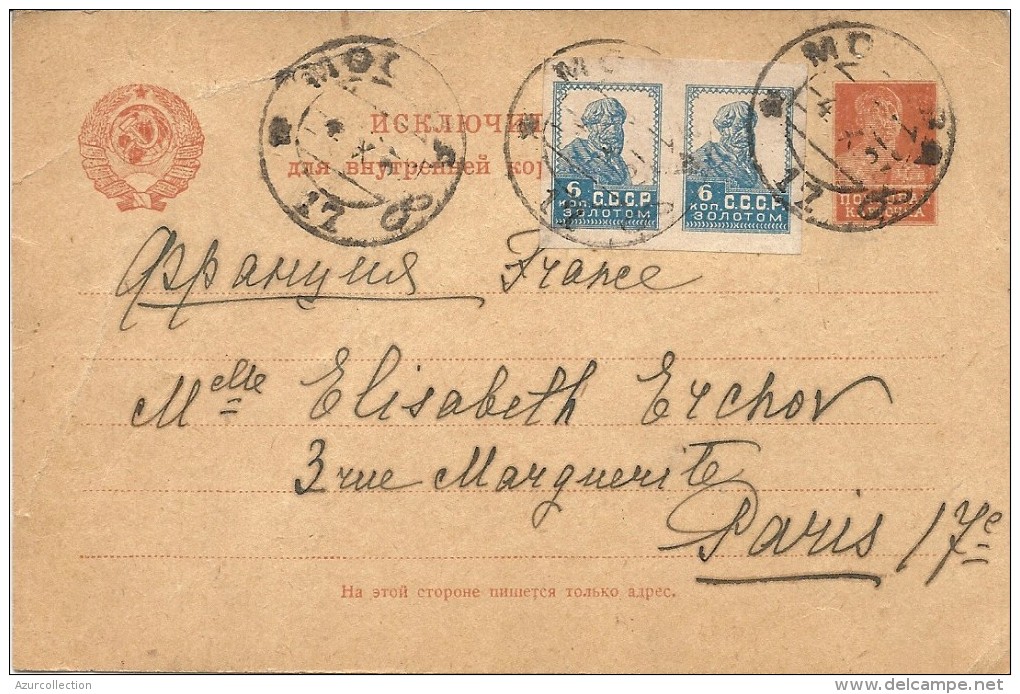 ИСКЛЮЧИ
для внутренней кор
6 коп. С.С.С.Р. ЗОЛОТОМ
6 коп. С.С.С.Р. ЗОЛОТОМ
Франция France
Melle Elisabeth Erchov
3 rue Marguerite
Paris 17e
На этой стороне пишется только адрес.
Azurcollection
delcampe.net